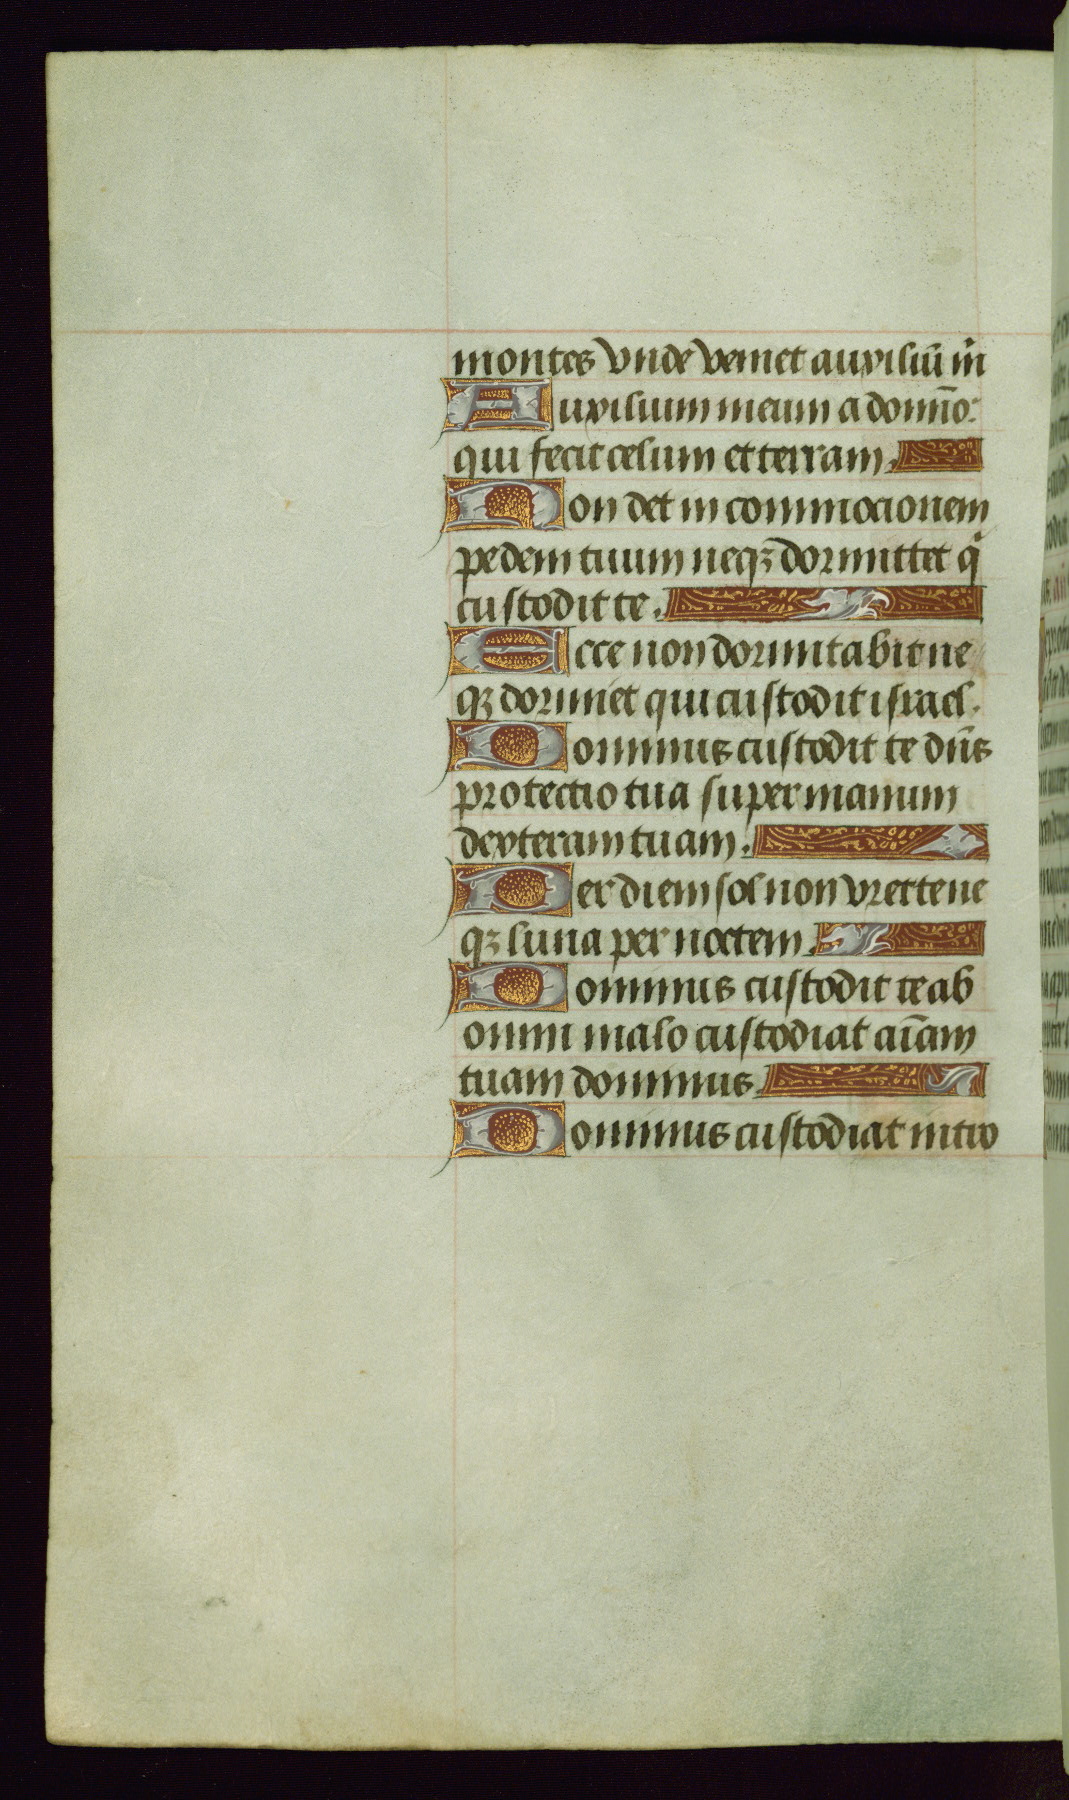 montes vnde veniet auxiliū m̄
Auxilium meum a domīo:
qui fecit celum et terram.
Non det in commocionem
pedem tuum neqꝫ dormitet q̄
custodit te.
Ecce non dormitabit ne
qꝫ dormiet qui custodit israel.
Dominus custodit te dn̄s
protectio tua super manum
dexteram tuam.
Per diem sol non vret te ne
qꝫ luna per noctem.
Dominus custodit te ab
omni malo custodiat aīam
tuam dominus.
Dominus custodiat intro